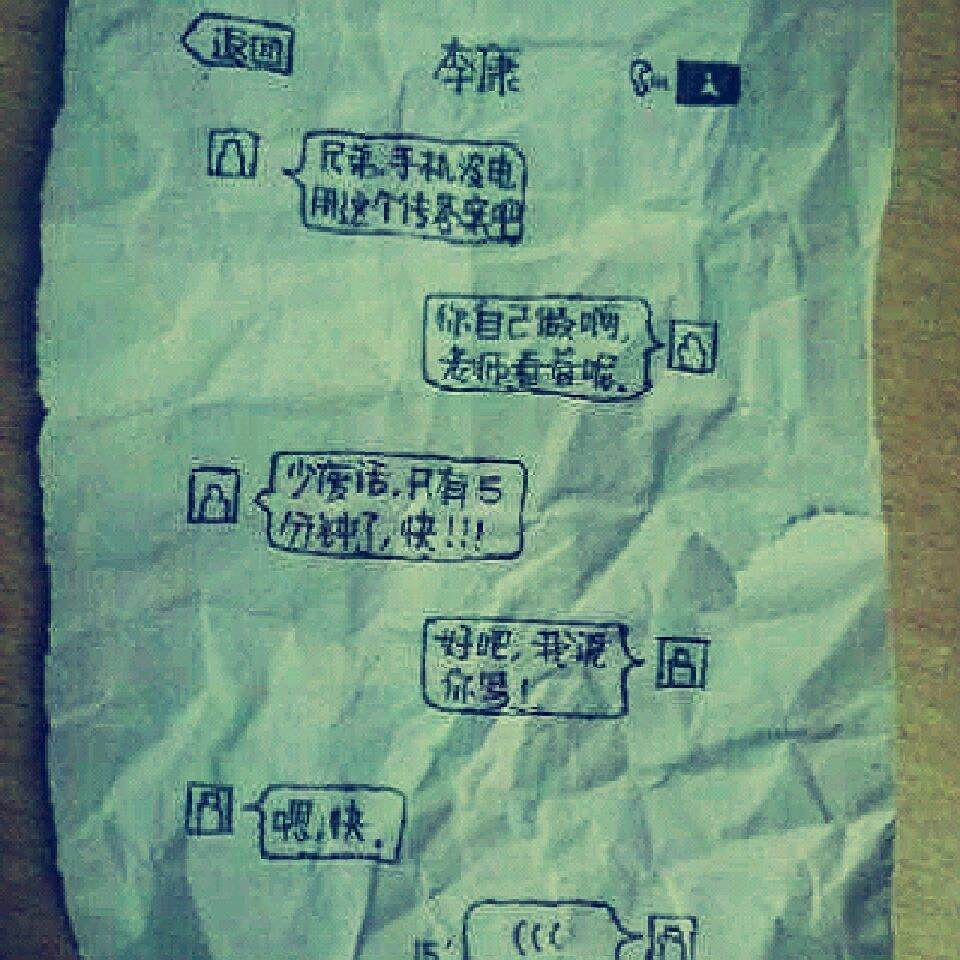 返回
李康
兄弟,手机没电
用这个传答案吧
你自己做啊,
老师看着呢.
少废话.只有5
分钟了,快!!!
好吧,我说
你写!
嗯,快.
15"